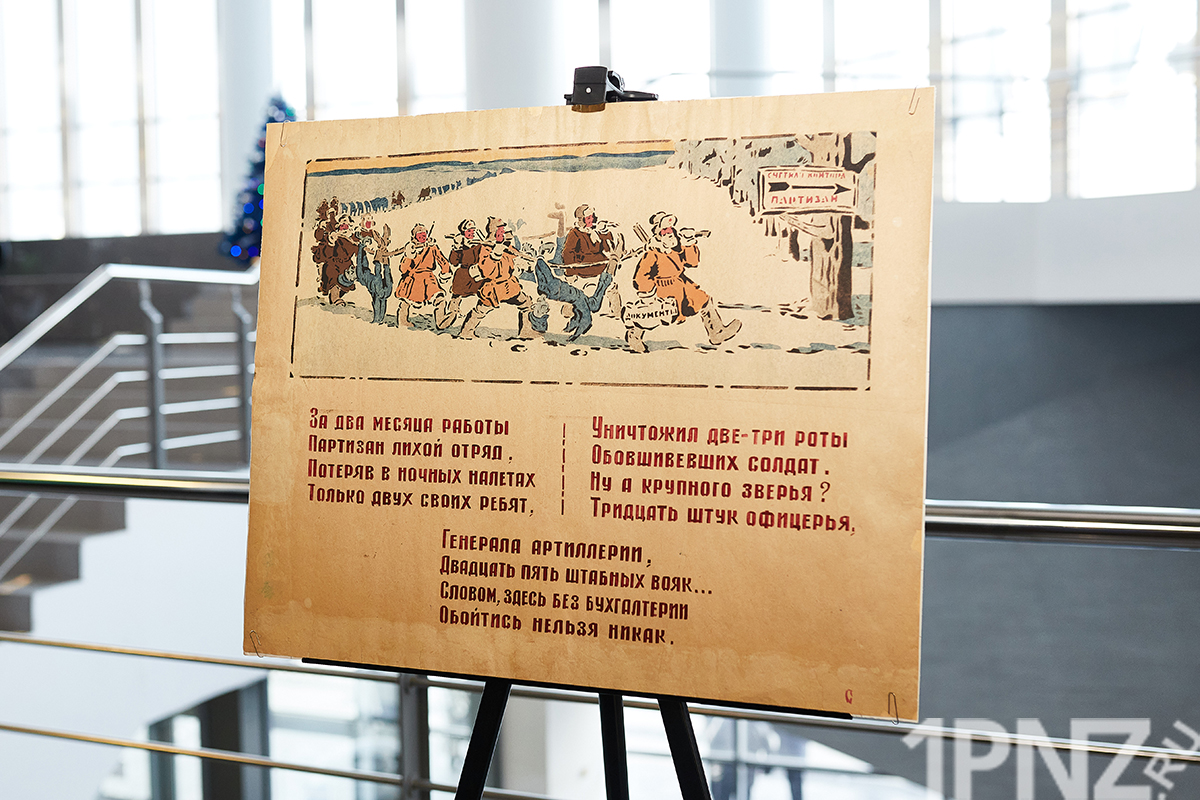 ПАРТИЗАН
ДОКУМЕНТЫ
За два месяца работы
Партизан лихой отряд,
Потеряв в ночных налетах
Только двух своих ребят,
Уничтожил две-три роты
Обовшивевших солдат.
Ну а крупного зверья?
Тридцать штук офицерья,
Генерала артиллерии,
Двадцать пять штабных вояк...
Словом, здесь без бухгалтерии
Обойтись нельзя никак.
С
1PNZ.RU